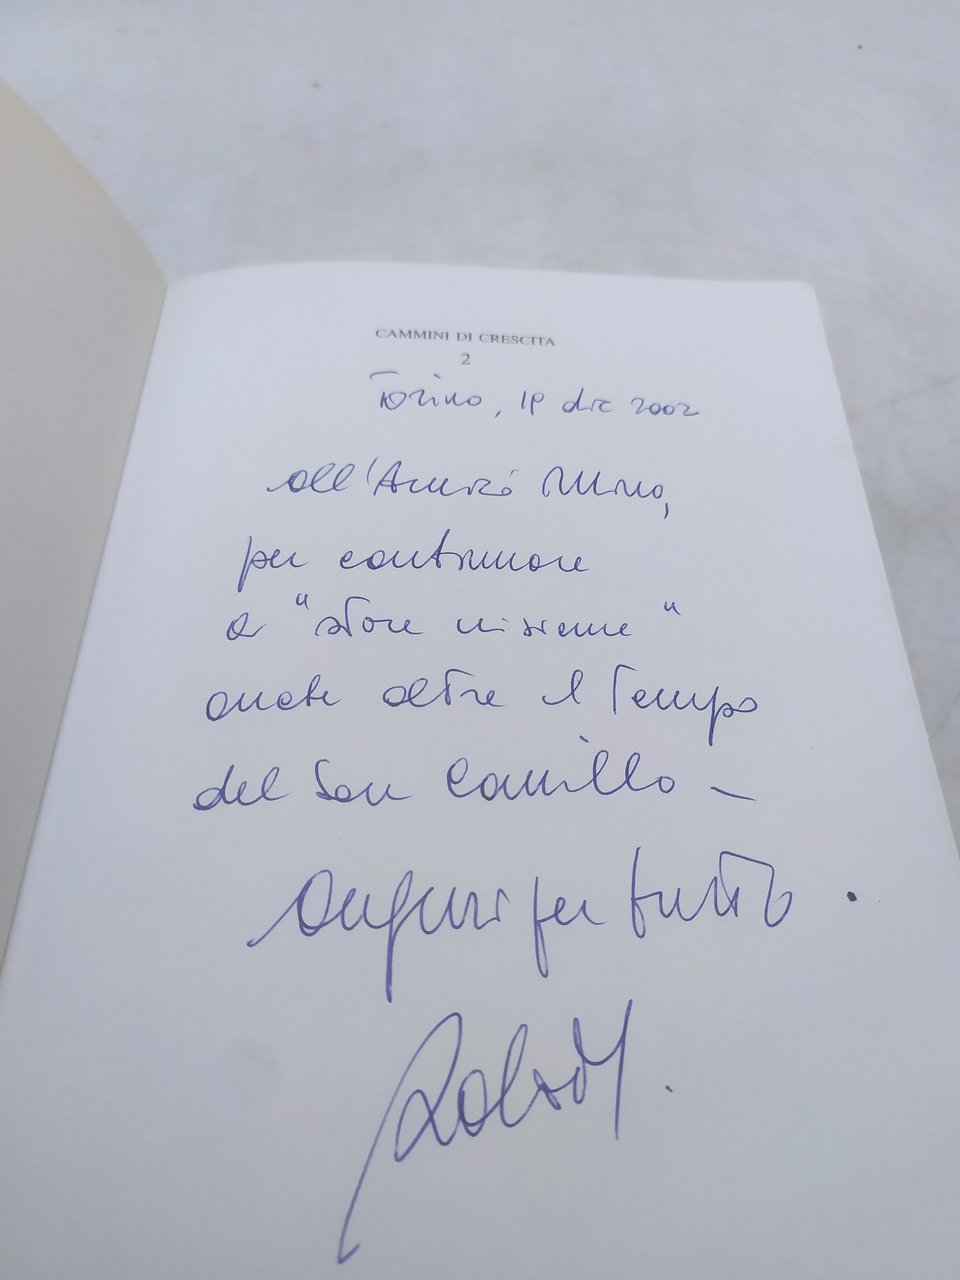 CAMMINI DI CRESCITA
2
Torino, 19 dic 2002
all'Amico Mimo,
per continuare
a "stare insieme"
anche oltre il tempo
del San Camillo –
Auguri per tutto.